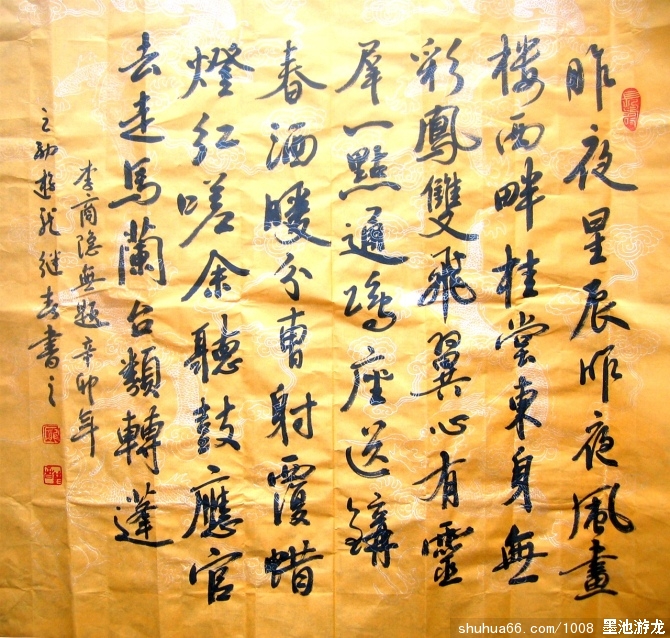 昨夜星辰昨夜風畫
楼西畔桂堂東身無
彩鳳雙飛翼心有靈
犀一點通隔座送
春酒暖分曹射覆蜡
燈红嗟余聽鼓應官
去走馬蘭台類轉蓬
李商隐無題辛卯年
之初遊龍继春書之
shuhua66.com/1008 墨池游龙